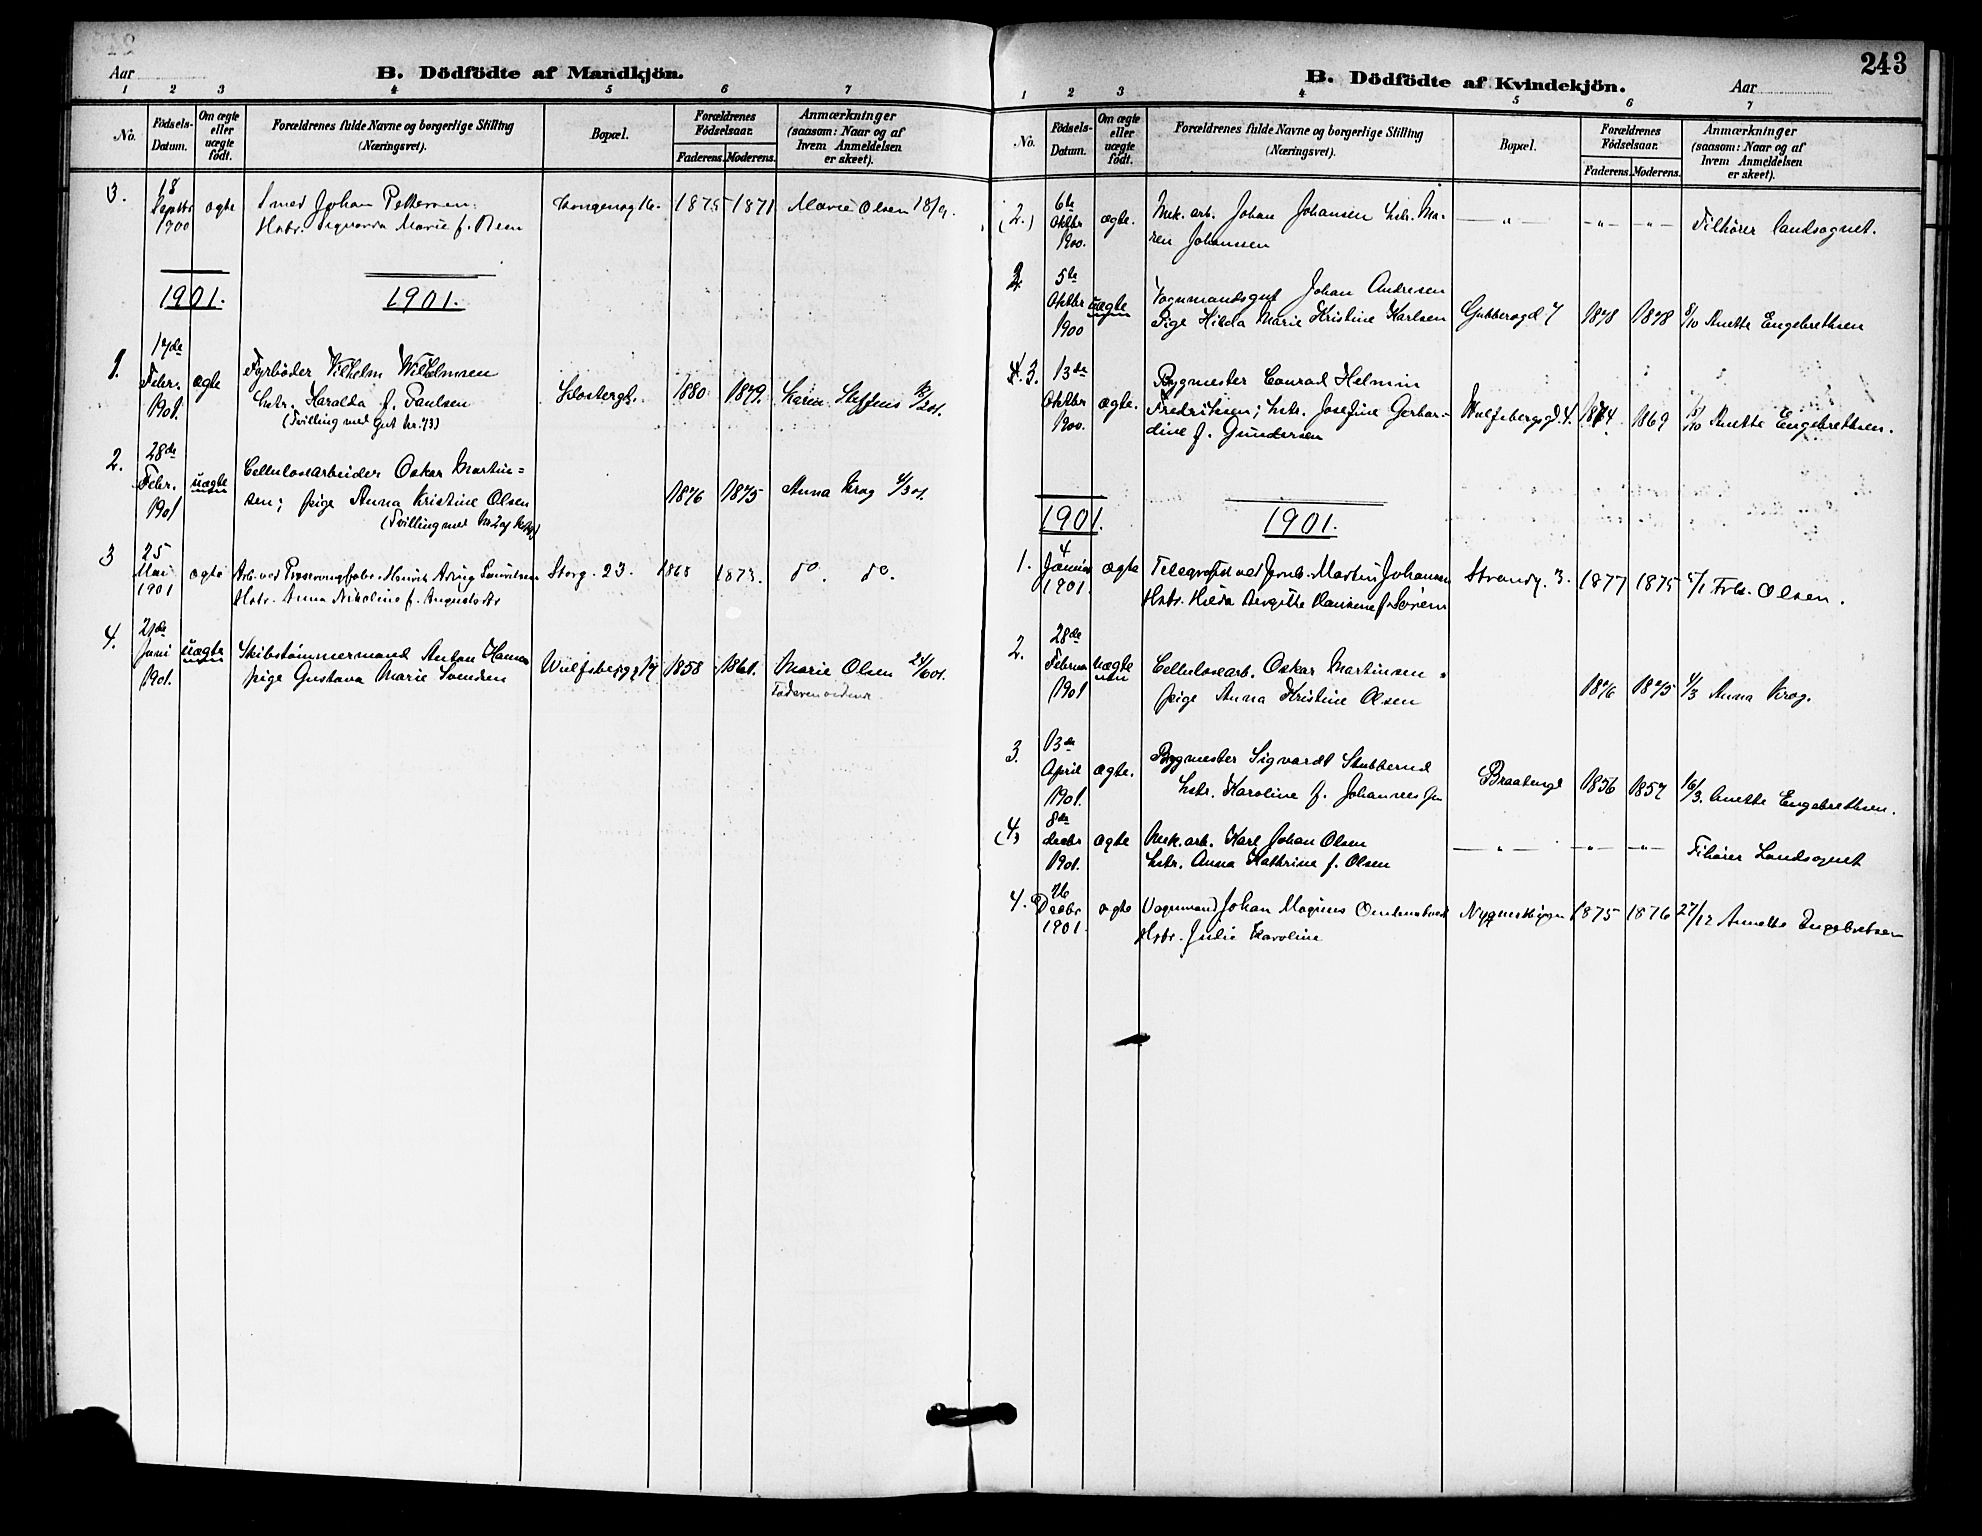 Aar
B. Dödfödte af Mandkjön.
1 2 3 4 5 6 7
No.
Födsels-
Datum.
Om ægte
eller
uægte
födt.
Forældrenes fulde Navne og borgerlige Stilling
(Næringsvei).
Bopæl.
Forældrenes
Födselsaar.
Faderens. Moderens.
Anmærkninger
(saasom: Naar og af
hvem Anmeldelsen
er skeet).
3. 18 Septbr 1900 ægte
Smed Johan Pettersen
Hstr. Marie f.
1875 1871 Marie Olsen 18/9.
1901. 1901.
1. 17de Febr. 1901. ægte
Fyrbøder Vilhelm Wilhelmsen
Hstr. Haralda f. Paulsen
(Tvilling med Gut Nr. 73)
1880 1879. Karen Steffens
2. 28de Febr. 1901 uægte
Cellulosearbeider Oskar Martin=
sen; pige Anna Kristine Olsen
(Tvilling med
1876 1875 Anna Krog 4/3 01.
3 25 Mai 1901 ægte
Arb. ved Henrik
Hstr. Anna Nikoline f.
Storg. 23. 1873. do. do.
4. 21de Juni 1901. uægte
Skibstømmermand Anton Hansen
pige Gustava Marie Svendsen
1858 1861. Marie Olsen 24/6 01.
243
B. Dödfödte af Kvindekjön.
Aar
1 2 3 4 5 6 7
No.
Födsels-
Datum.
Om ægte
eller
uægte
födt.
Forældrenes fulde Navne og borgerlige Stilling
(Næringsvei).
Bopæl.
Forældrenes
Födselsaar.
Faderens. Moderens.
Anmærkninger
(saasom: Naar og af
hvem Anmeldelsen
er skeet).
(2.) 6te Oktbr 1900. ægte.
Mek. arb. Johan Johansen hstr. Ma-
ren Johansen
—„— —„— —„— Tilhører landsognet.
2 5te Oktbr 1900 uægte
Vognmandsgut Johan Andresen
Pige Hilda Marie Kristine Karlsen
Gubberogd 7 1878 1878 8/10 Anette Engebrethsen
3. 13de Oktbr 1900. ægte.
Bygmester Conrad Helmin
Fredriksen; hstr. Josefine Gerhar-
dine f. Gundersen
Wulfsbergsgd. 4. 1874 1869 Anette Engebrethsen.
1901. 1901.
1. 4 Januar 1901. ægte
Telegrafist ved Jernb. Martin Johansen
Hstr. Hilda Bergitte Hansine f.
Strandg. 3. 1877 1875 5/1 Frk. Olsen.
2. 28de Februar 1901 uægte
Cellulosearb. Oskar Martinsen
pige Anna Kristine Olsen
1876 1875 4/3 Anna Krog.
3. 13de April 1901. ægte.
Bygmester Sigvardt Stubberud
hstr. Karoline f. Johannessen
Braatengt 1856 1857 16/3. Anette Engebrethsen.
(4) 8de decbr 1901. ægte
Mek. arb. Karl Johan Olsen
hstr. Anna Kathrine f. Olsen
—„— —„— —„— Tilhører Landsognet
4. 26 Decbr 1901. ægte
Vognmand Johan Magnus
Hstr. Julie Karoline
1875 1876 27/12 Annette Engebretsen